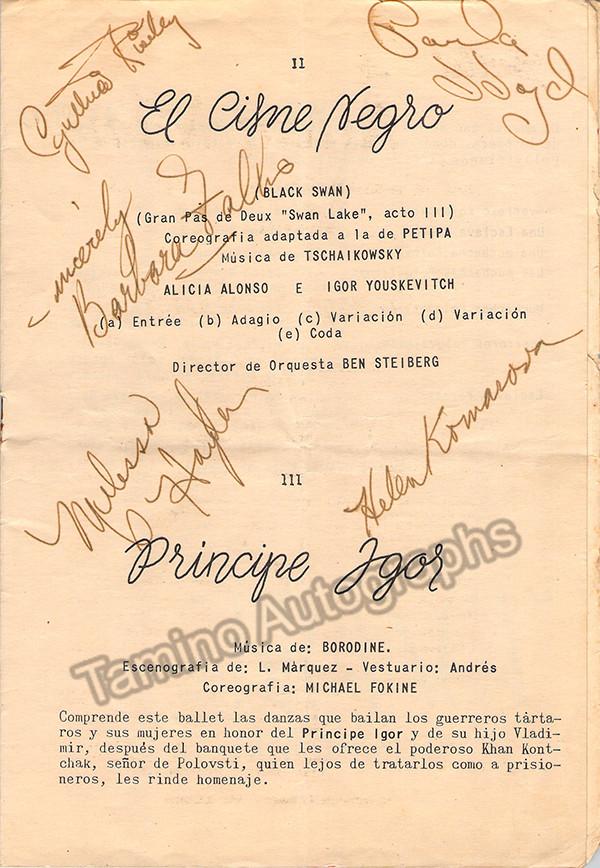 Cynthia Risely
Paula Lloyd
II
El Cisne Negro
(BLACK SWAN)
(Gran Pas de Deux "Swan Lake", acto III)
Coreografia adaptada a la de PETIPA
Música de TSCHAIKOWSKY
ALICIA ALONSO E IGOR YOUSKEVITCH
(a) Entrée (b) Adagio (c) Variación (d) Variación
(e) Coda
Director de Orquesta BEN STEIBERG
Sincerely
Barbara Fallis
Melissa
Hayden
Helen Komarova
III
Principe Igor
Tamino Autographs
Música de: BORODINE.
Escenografia de: L. Màrquez - Vestuario: Andrés
Coreografia: MICHAEL FOKINE
Comprende este ballet las danzas que bailan los guerreros tárta-
ros y sus mujeres en honor del Principe Igor y de su hijo Vladi-
mir, después del banquete que les ofrece el poderoso Khan Kont-
chak, señor de Polovsti, quien lejos de tratarlos como a prisio-
neros, les rinde homenaje.